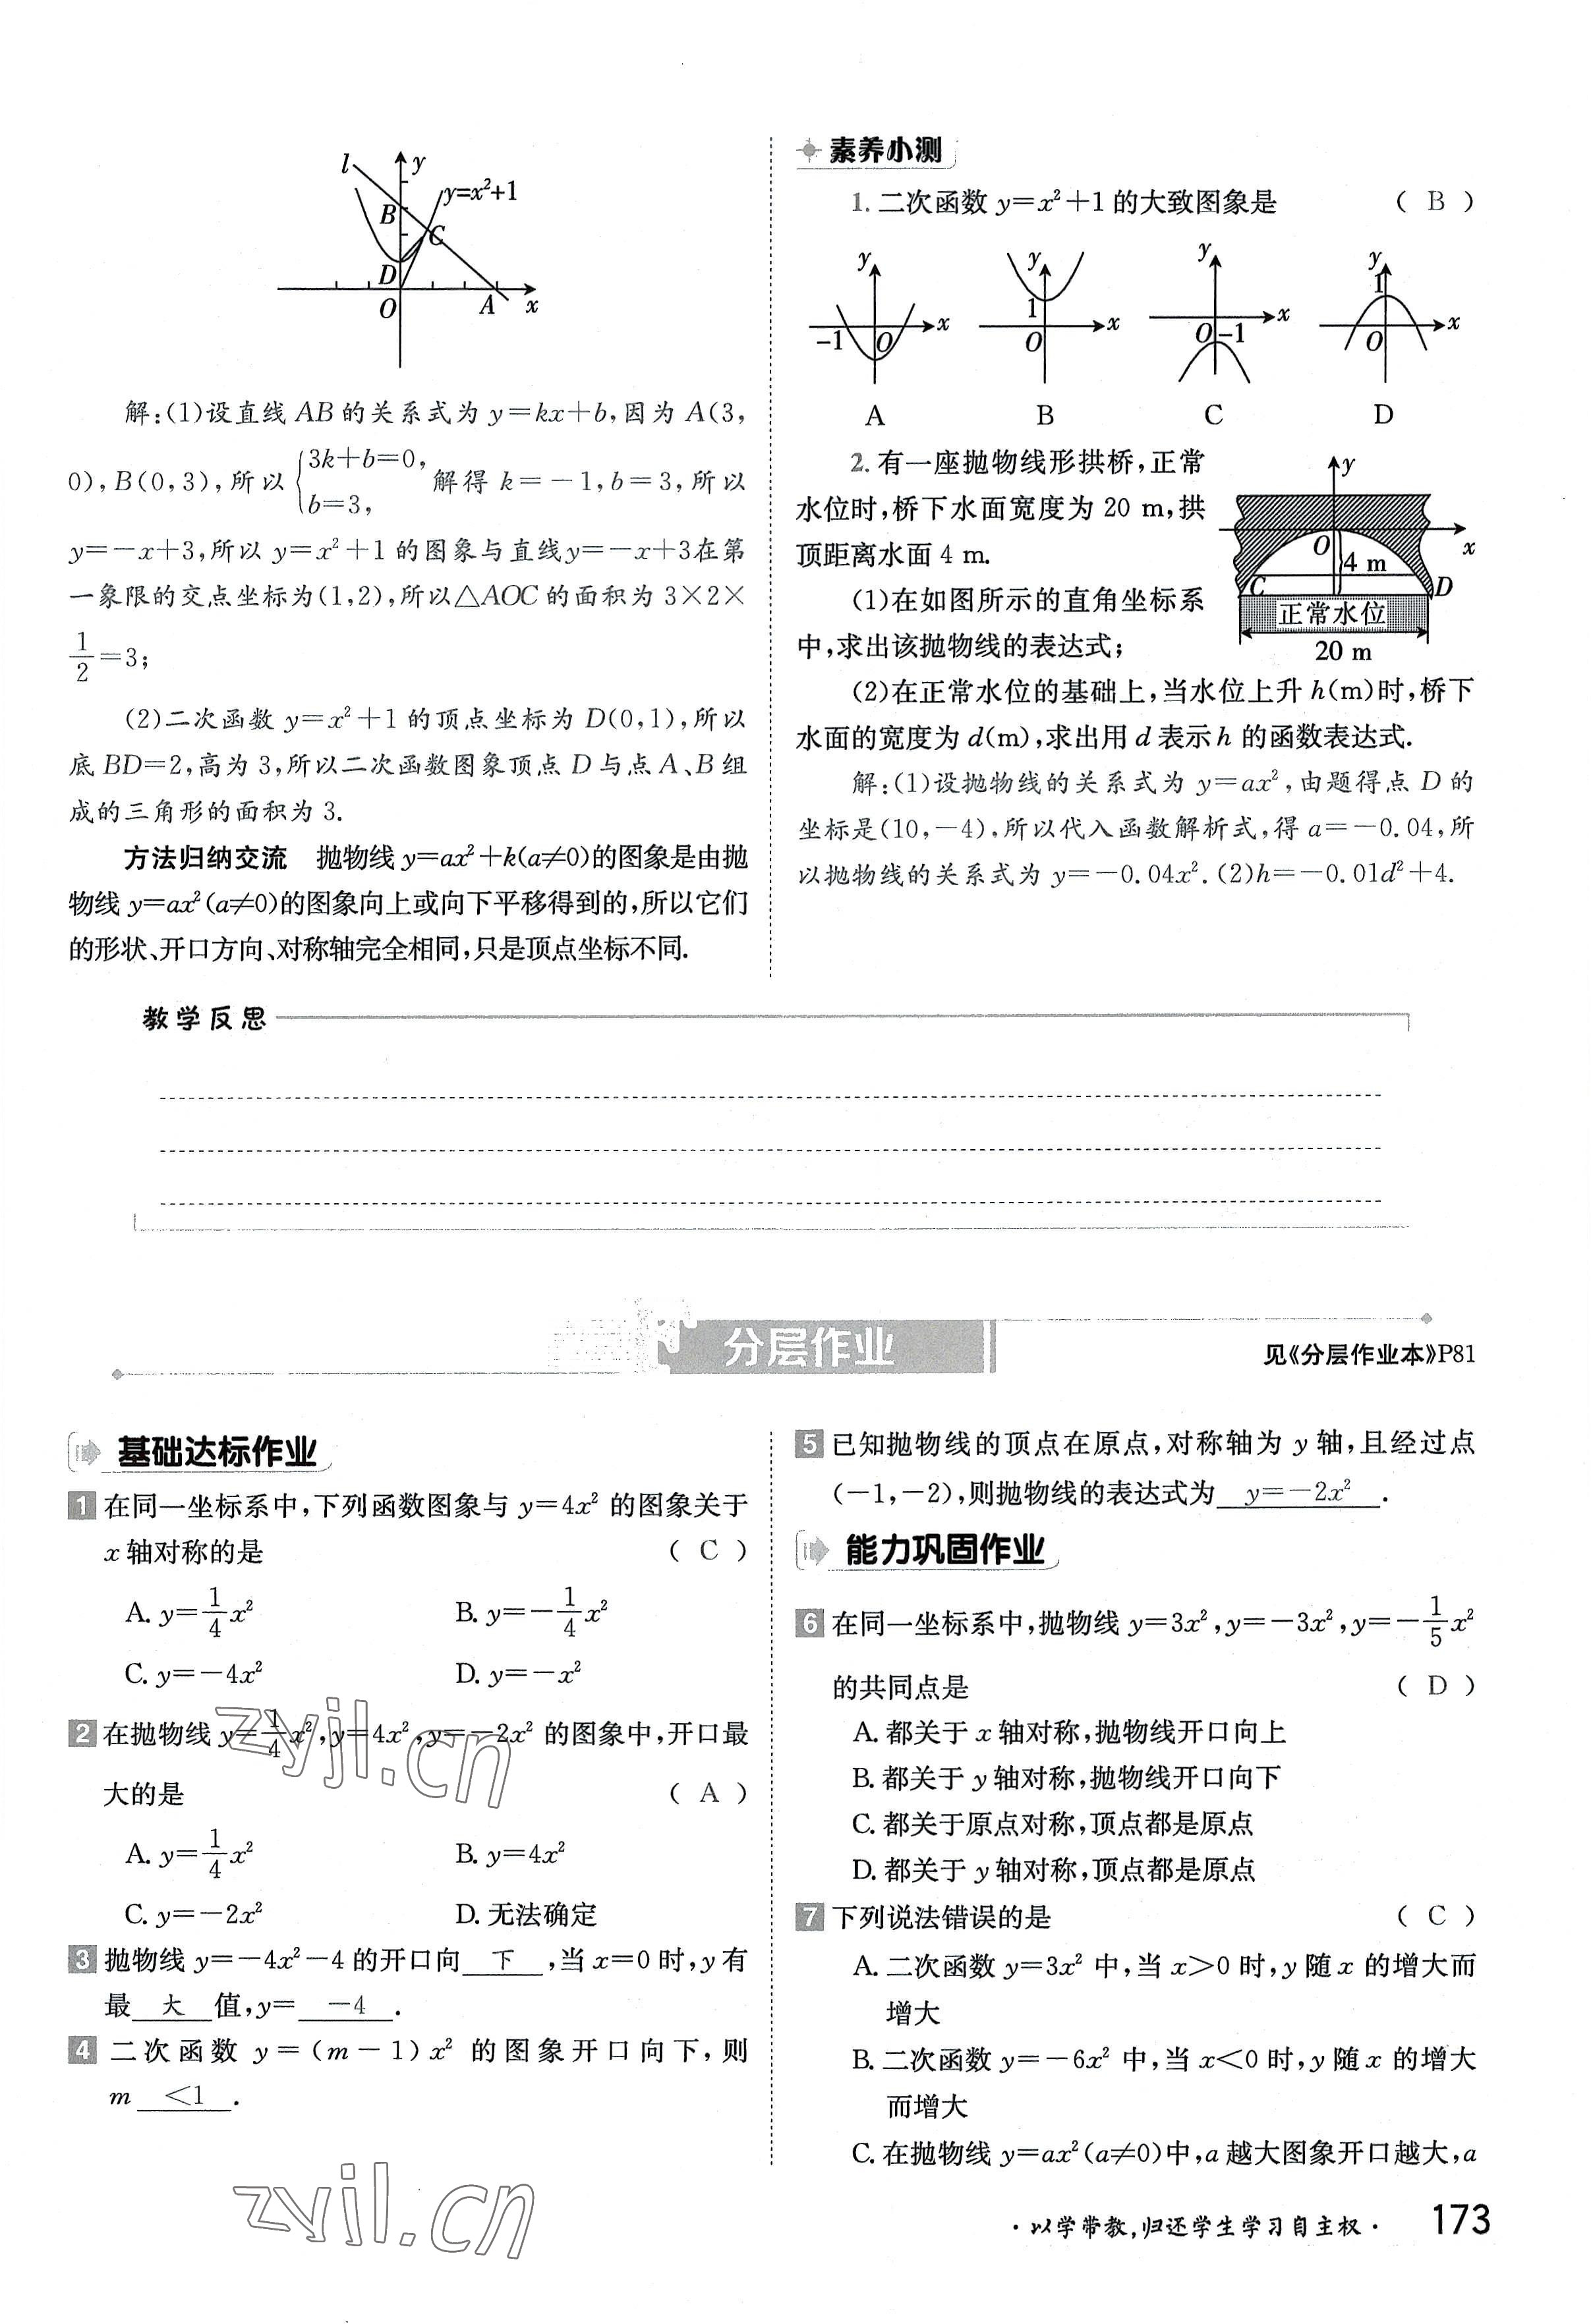 l
y
y=x²+1
B
C
D
O
A
x
解:(1)设直线 AB 的关系式为 y=kx+b,因为 A(3,
0),B(0,3),所以 {3k+b=0, b=3, 解得 k=-1,b=3,所以
y=-x+3,所以 y=x²+1 的图象与直线y=-x+3在第
一象限的交点坐标为(1,2),所以△AOC 的面积为 3×2×
1/2=3;
(2)二次函数 y=x²+1 的顶点坐标为 D(0,1),所以
底 BD=2,高为 3,所以二次函数图象顶点 D 与点 A、B 组
成的三角形的面积为 3.
方法归纳交流 抛物线 y=ax²+k(a≠0)的图象是由抛
物线 y=ax²(a≠0)的图象向上或向下平移得到的,所以它们
的形状、开口方向、对称轴完全相同,只是顶点坐标不同.
素养小测
1. 二次函数 y=x²+1 的大致图象是 ( B )
y x -1 O
y x 1 O
y x O -1
y x 1 O
A B C D
2. 有一座抛物线形拱桥,正常
水位时,桥下水面宽度为 20 m,拱
顶距离水面 4 m.
(1)在如图所示的直角坐标系
中,求出该抛物线的表达式;
y
O
x
4 m
C
D
正常水位
20 m
(2)在正常水位的基础上,当水位上升 h(m)时,桥下
水面的宽度为 d(m),求出用 d 表示 h 的函数表达式.
解:(1)设抛物线的关系式为 y=ax²,由题得点 D 的
坐标是(10,-4),所以代入函数解析式,得 a=-0.04,所
以抛物线的关系式为 y=-0.04x².(2)h=-0.01d²+4.
教学反思
分层作业
见《分层作业本》P81
基础达标作业
1 在同一坐标系中,下列函数图象与 y=4x² 的图象关于
x 轴对称的是 ( C )
A. y=1/4x² B. y=-1/4x²
C. y=-4x² D. y=-x²
2 在抛物线 y=1/4x²,y=4x²,y=-2x² 的图象中,开口最
大的是 ( A )
A. y=1/4x² B. y=4x²
C. y=-2x² D. 无法确定
3 抛物线 y=-4x²-4 的开口向 下 ,当 x=0 时,y 有
最 大 值,y= -4 .
4 二次函数 y=(m-1)x² 的图象开口向下,则
m <1 .
5 已知抛物线的顶点在原点,对称轴为 y 轴,且经过点
(-1,-2),则抛物线的表达式为 y=-2x² .
能力巩固作业
6 在同一坐标系中,抛物线 y=3x²,y=-3x²,y=-1/5x²
的共同点是 ( D )
A. 都关于 x 轴对称,抛物线开口向上
B. 都关于 y 轴对称,抛物线开口向下
C. 都关于原点对称,顶点都是原点
D. 都关于 y 轴对称,顶点都是原点
7 下列说法错误的是 ( C )
A. 二次函数 y=3x² 中,当 x>0 时,y 随 x 的增大而
增大
B. 二次函数 y=-6x² 中,当 x<0 时,y 随 x 的增大
而增大
C. 在抛物线 y=ax²(a≠0)中,a 越大图象开口越大,a
zyjl.cn
zyjl.cn
·以学带教,归还学生学习自主权· 173